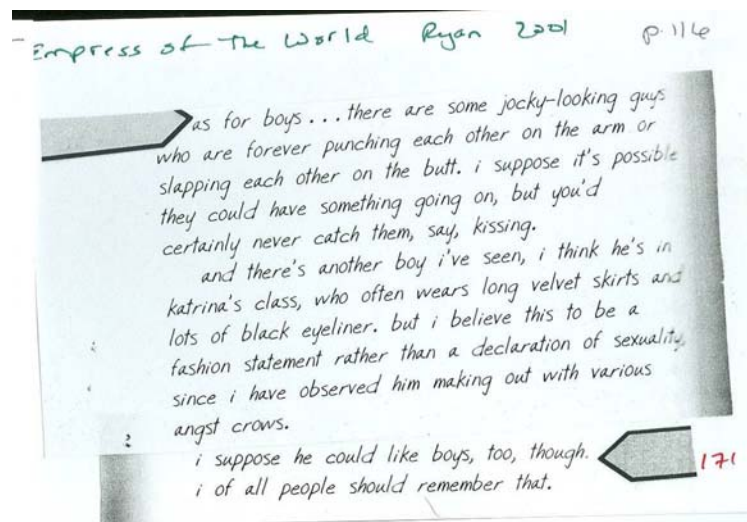 Empress of the World Ryan 2001 p. 116
as for boys... there are some jocky-looking guys
who are forever punching each other on the arm or
slapping each other on the butt. i suppose it's possible
they could have something going on, but you'd
certainly never catch them, say, kissing.
and there's another boy i've seen, i think he's in
katrina's class, who often wears long velvet skirts and
lots of black eyeliner. but i believe this to be a
fashion statement rather than a declaration of sexuality,
since i have observed him making out with various
angst crows.
i suppose he could like boys, too, though.
171
i of all people should remember that.